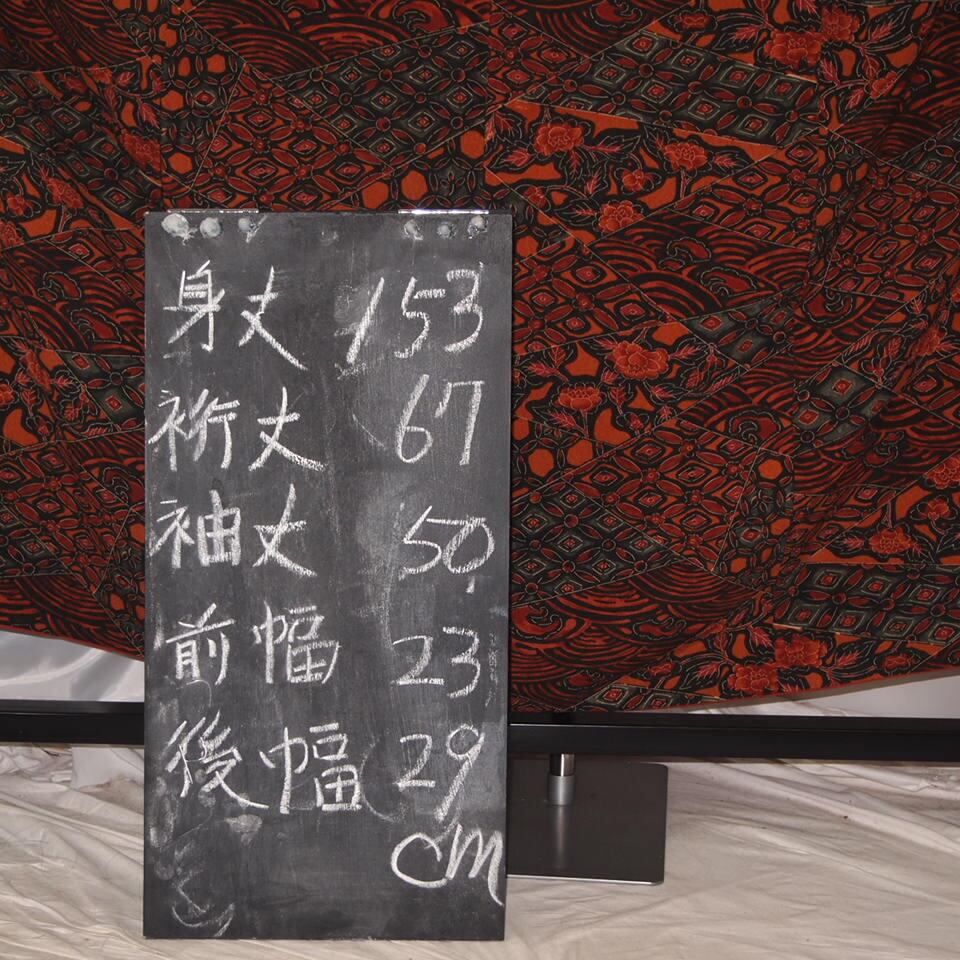 身丈 153
裄丈 67
袖丈 50
前幅 23
後幅 29
cm